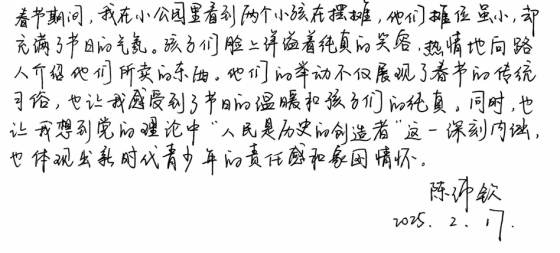 春节期间，我在小公园里看到两个小孩在摆摊，他们摊位虽小，却
充满了节日的气氛。孩子们脸上洋溢着纯真的笑容，热情地向路
人介绍他们所卖的东西。他们的举动不仅展现了春节的传统
习俗，也让我感受到了节日的温暖和孩子们的纯真。同时，也
让我想到党的理论中“人民是历史的创造者”这一深刻内涵，
也体现出新时代青少年的责任感和家国情怀。
陈沛钦
2025.2.17.